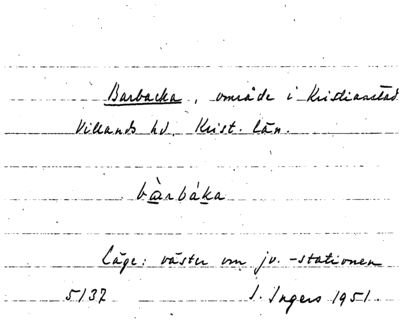 Barbacka, område i Kristianstad
Villands hd. Krist. län.
bàrbáka
Läge: väster om jv.-stationen
5137 I. Ingers 1951.